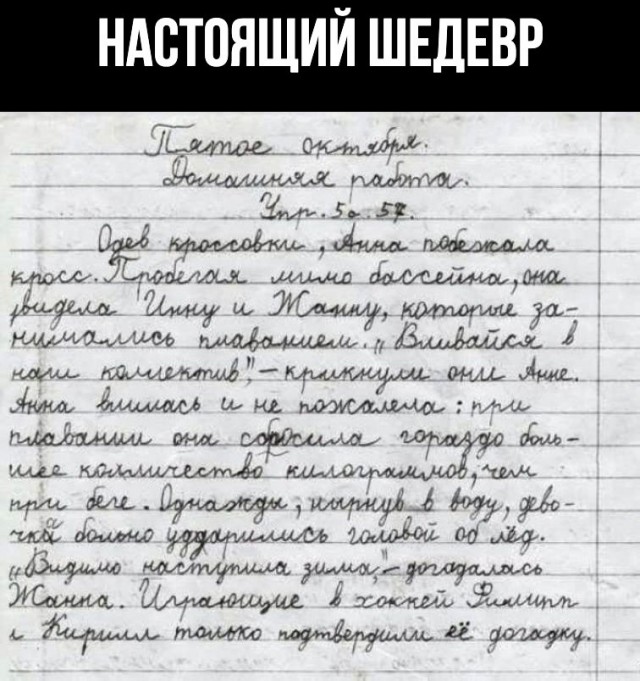 НАСТОЯЩИЙ ШЕДЕВР
Пятое октября.
Домашняя работа.
Упр. 5а. 57.
Одев кроссовки, Анна побежала
кросс. Пробегая мимо бассейна, она
увидела Инну и Жанну, которые за-
нимались плаванием. „Вливайся в
наш коллектив", – крикнули они Анне.
Анна влилась и не пожалела: при
плавании она сбросила гораздо боль-
шее колличество килограммов, чем
при беге. Однажды, нырнув в воду, дево-
чки больно уддарились головой об лёд.
„Видимо наступила зима," – догадалась
Жанна. Играющие в хоккей Филипп
и Кирилл только подтвердили её догадку.